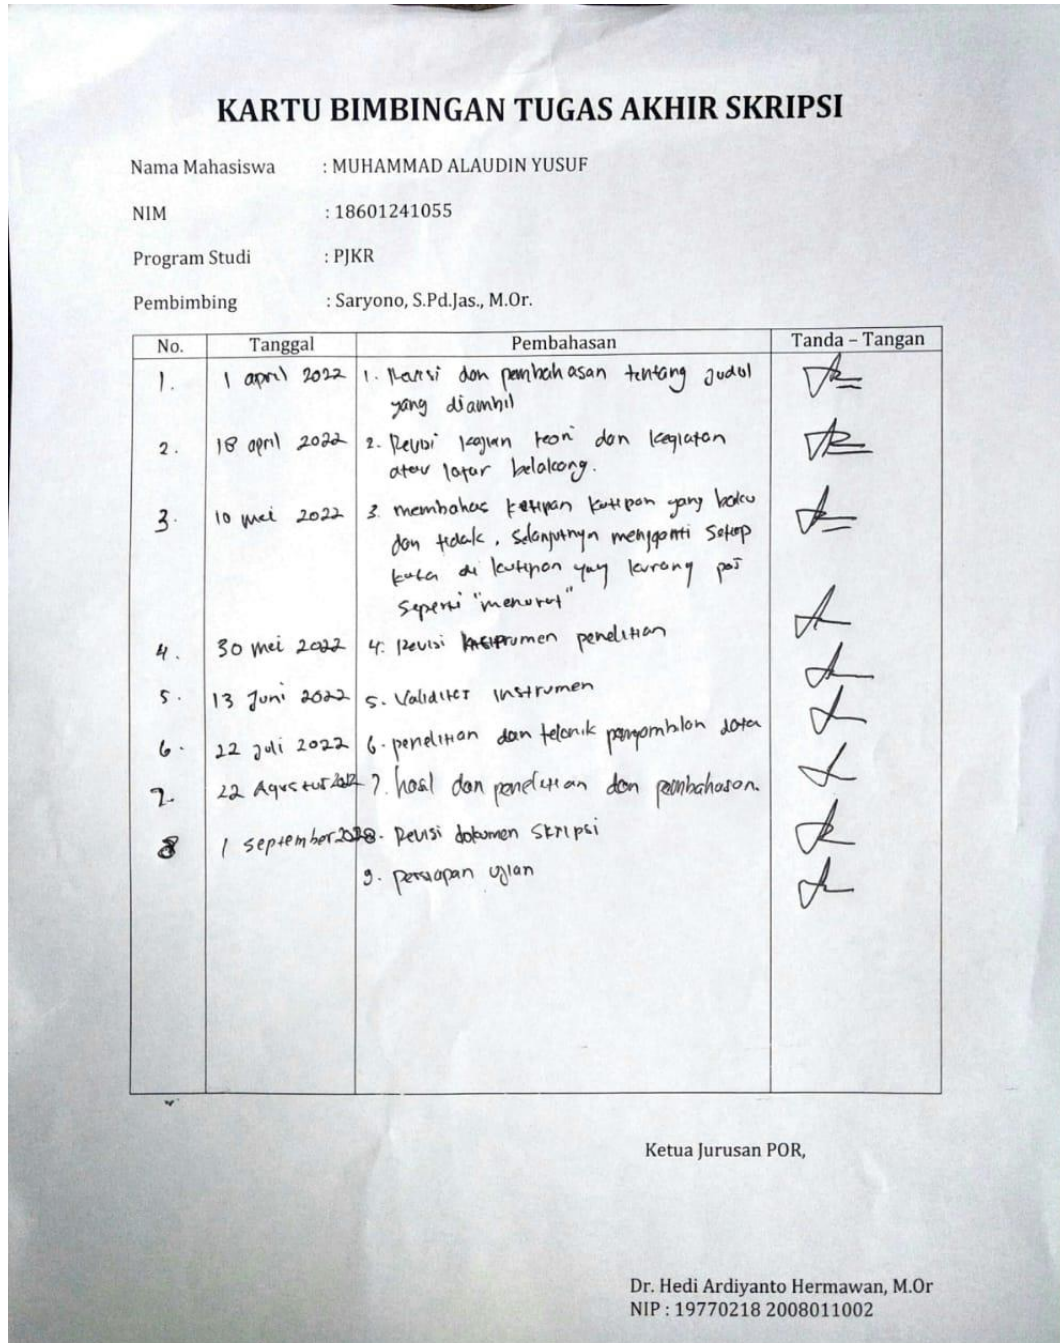 KARTU BIMBINGAN TUGAS AKHIR SKRIPSI
Nama Mahasiswa : MUHAMMAD ALAUDIN YUSUF
NIM : 18601241055
Program Studi : PJKR
Pembimbing : Saryono, S.Pd.Jas., M.Or.
No. Tanggal Pembahasan Tanda – Tangan
1. 1 april 2022 1. dan pembahasan tentang judul
yang diambil
2. 18 april 2022 2. Revisi kajian teori dan kegiatan
atau latar belakang.
3. 10 mei 2022 3. membahas kutipan yang baku
dan tidak, selanjutnya mengganti setiap
kata di kutipan yang kurang pas
seperti "menurut"
4. 30 mei 2022 4. Revisi instrumen penelitian
5. 13 Juni 2022 5. Validitas Instrumen
6. 22 juli 2022 6. penelitian dan teknik data
7. 22 Agustus 2022 7. hasil dan penelitian dan pembahasan.
8 1 september 2022 8. Revisi dokumen skripsi
9. persiapan ujian
Ketua Jurusan POR,
Dr. Hedi Ardiyanto Hermawan, M.Or
NIP : 19770218 2008011002